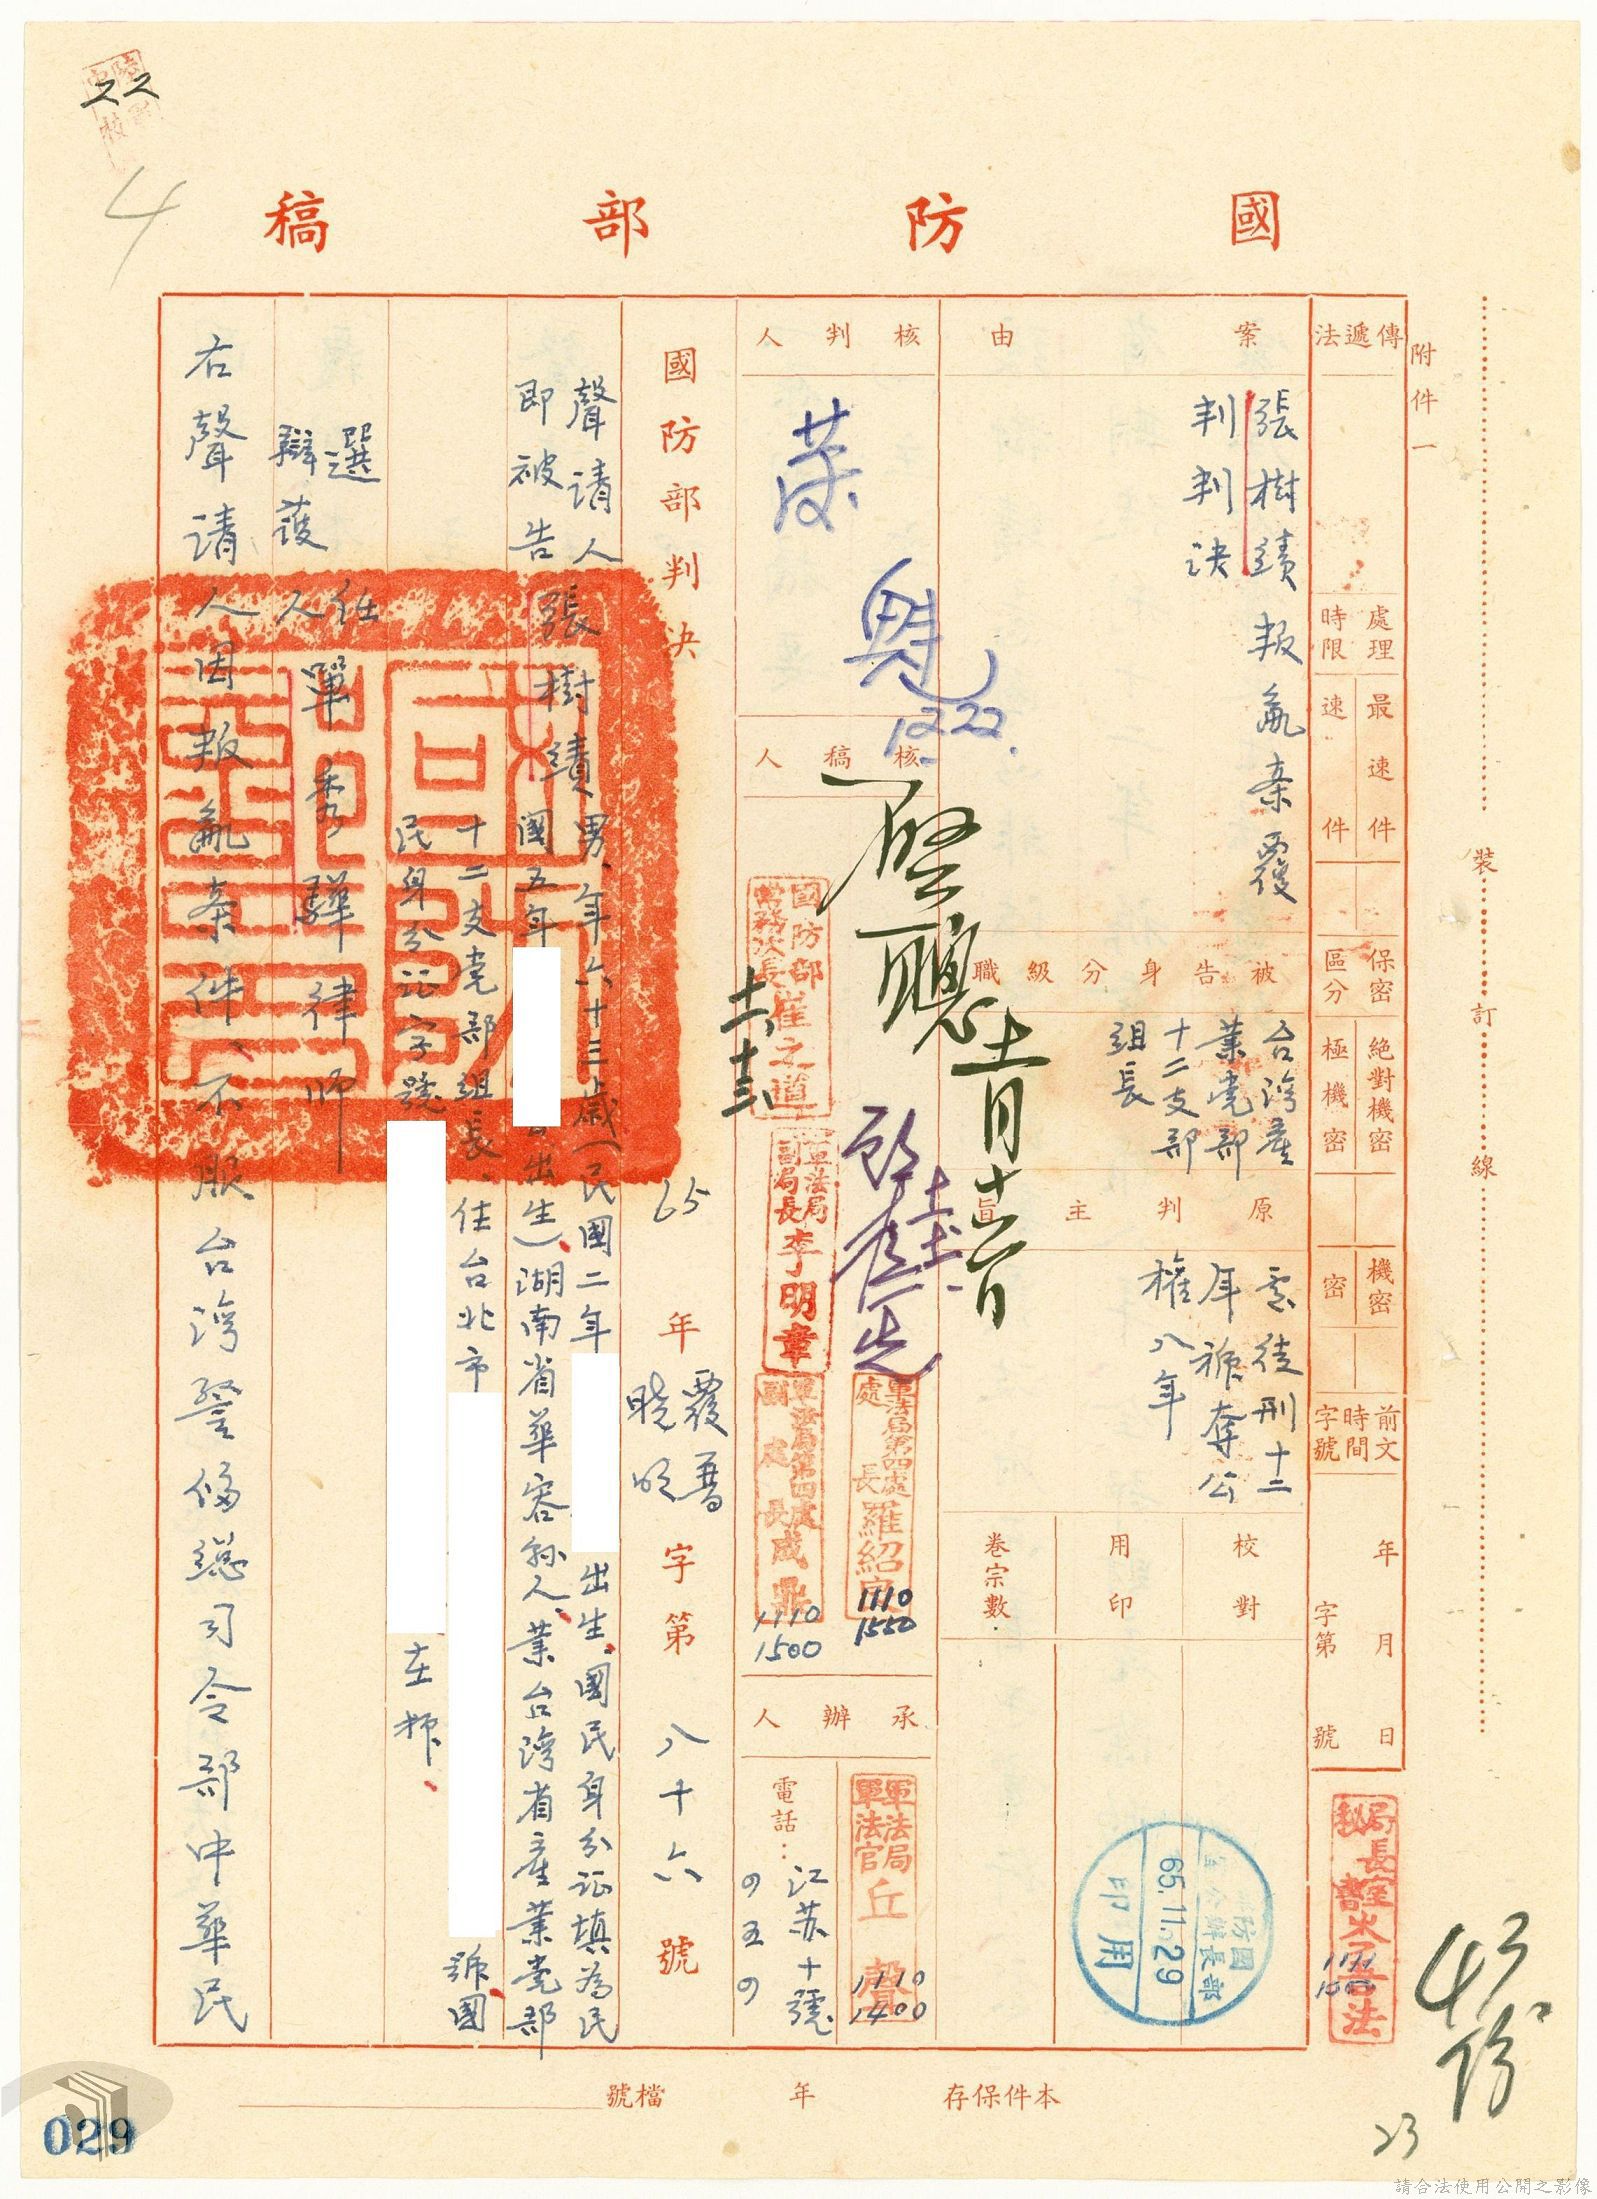 國防部稿
附件一
傳遞法
處理時限
最速件
速件
保密區分
絕對機密
極機密
機密
密
前文時間字號
年月日
字第號
案由
張樹績叛亂案覆
判判決
被告身分級職
台灣產
業党部
十二支部
組長
原判主旨
處徒刑十二
年褫奪公
權八年
校對
用印
卷宗數
核判人
1222.
核稿人
國防部
常務次長崔之道
軍法局
副局長李明章
軍法局第四處
副處長成鼎
1110
1500
軍法局第四處
處長羅紹
1110
1550
承辦人
軍法局
軍法官丘聲
1110
1400
電話：
江苏十號
國防部判決
65年覆普曉字第八十六號
聲请人
即被告張樹績男、年六十三歲（民國二年
出生、國民身分证填為民
國五年
出生）湖南省華容縣人、業台灣省產業党部
十二支党部組長、住台北市
號、國
民身分证字號
在押、
選任
辯護人單秀驊律师
右聲请人因叛亂案件、不服台灣警備總司令部中華民
65.11.29
印用
裝訂線
本件保存
年
檔號
029
22
4
43份
23
請合法使用公開之影像